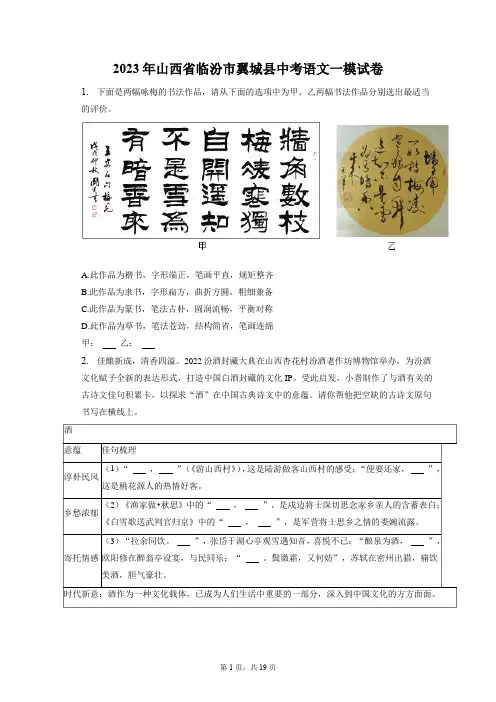 2023年山西省临汾市翼城县中考语文一模试卷
1. 下面是两幅咏梅的书法作品，请从下面的选项中为甲、乙两幅书法作品分别选出最适当
的评价。
牆角數枝
梅凌寒獨
自開遥知
不是雪爲
有暗香來
甲
乙
A.此作品为楷书，字形端正，笔画平直，规矩整齐
B.此作品为隶书，字形扁方，曲折方圆，粗细兼备
C.此作品为篆书，笔法古朴，圆润流畅，平衡对称
D.此作品为草书，笔法苍劲，结构简省，笔画连绵
甲：　　乙：
2. 佳酿新成，清香四溢。2022汾酒封藏大典在山西杏花村汾酒老作坊博物馆举办，为汾酒
文化赋予全新的表达形式，打造中国白酒封藏的文化IP。受此启发，小晋制作了与酒有关的
古诗文佳句积累卡，以探求“酒”在中国古典诗文中的意蕴。请你帮他把空缺的古诗文原句
书写在横线上。
酒
意蕴 佳句梳理
淳朴民风 （1）“　　，　　”（《游山西村》），这是陆游做客山西村的感受；“便要还家，　　”，
这是桃花源人的热情好客。
乡愁浓郁 （2）《渔家傲•秋思》中的“　　，　　”，是戍边将士深切思念家乡亲人的含蓄表白；
《白雪歌送武判官归京》中的“　　，　　”，是军营将士思乡之情的委婉流露。
寄托情感 （3）“拉余同饮。　　”，张岱于湖心亭观雪遇知音，喜悦不已；“酿泉为酒，　　”，
欧阳修在醉翁亭设宴，与民同乐；“　　。鬓微霜，又何妨”，苏轼在密州出猎，痛饮
美酒，胆气豪壮。
时代新意：酒作为一种文化载体，已成为人们生活中重要的一部分，深入到中国文化的方方面面。
第1页，共19页